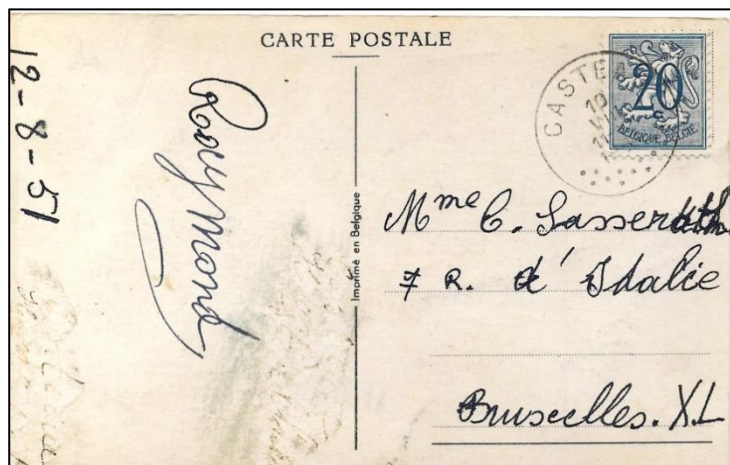 CARTE POSTALE
12-8-51
Raymond
Imprimé en Belgique
CASTE
20
BELGIQUE BELGIË
Mme C. Sasserath
7 R. d'Idalie
Bruxelles. XL